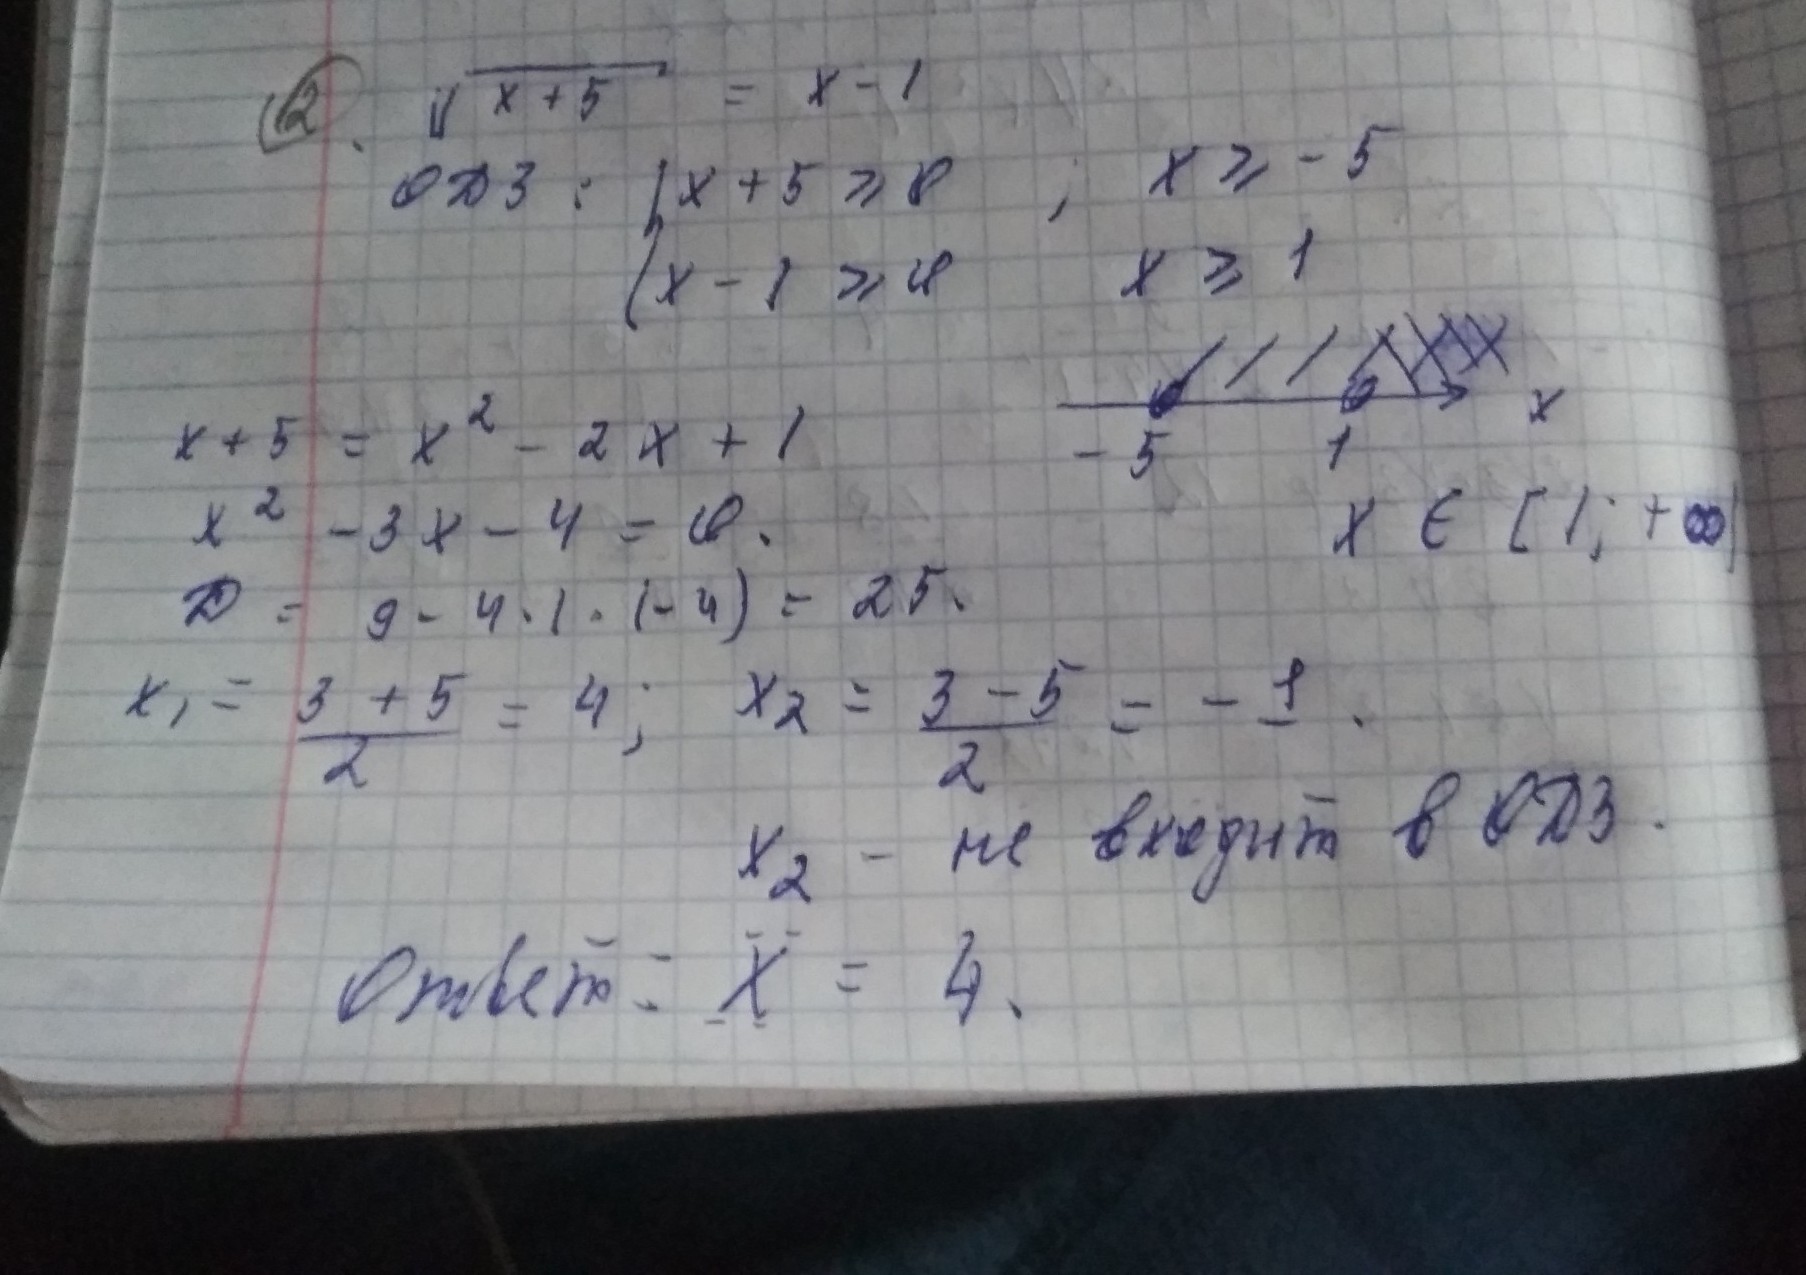 2. √x+5 = x-1
ОДЗ: { x+5 ≥ 0 ; x ≥ -5
{ x-1 ≥ 0 x ≥ 1
-5 1 x
x+5 = x² - 2x + 1
x ∈ [1; +∞)
x² - 3x - 4 = 0.
D = 9 - 4·1·(-4) = 25.
x₁ = (3+5)/2 = 4; x₂ = (3-5)/2 = -1.
x₂ - не входит в ОДЗ.
Ответ: x = 4.